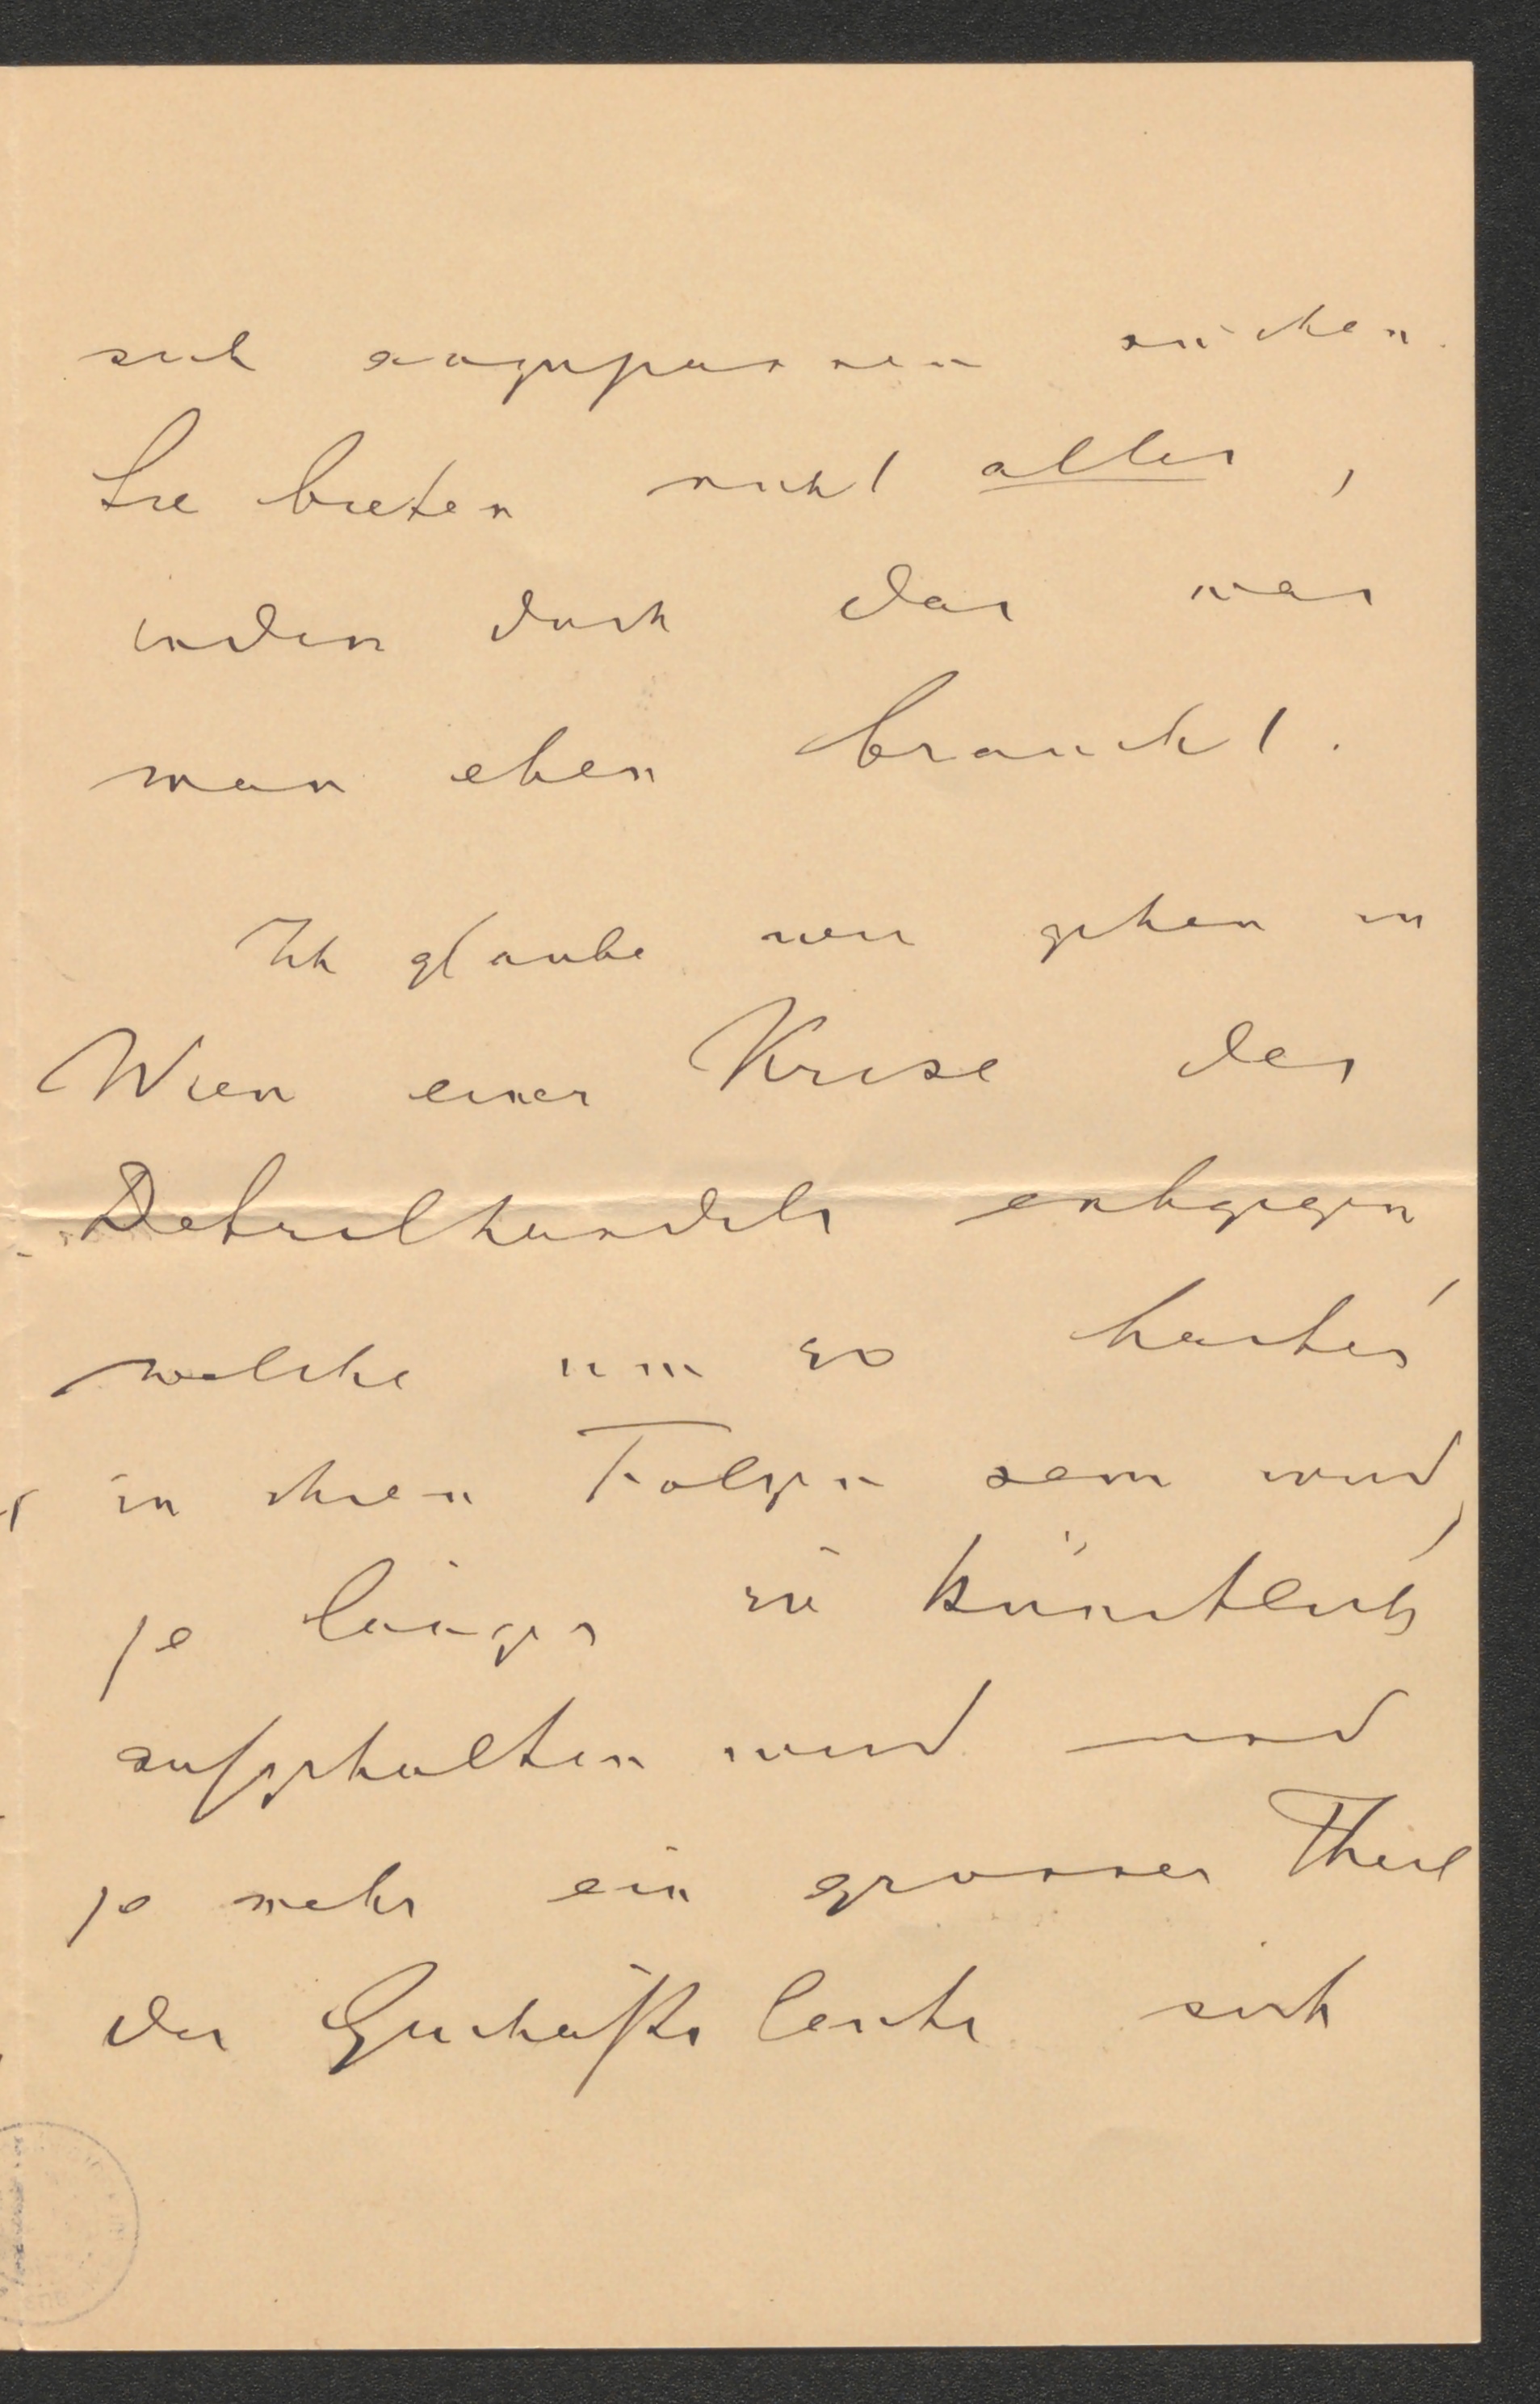 sich anzupassen suchen.
Sie bieten nicht alles,
indem doch das was
man eben braucht.
Ich glaube wir gehen in
Wien einer Krise des
Detailhandels entgegen
welche um so härter
in ihren Folgen sein wird,
je länger sie künstlich
aufgehalten wird und
je mehr ein grosser Theil
der Geschäftsleute sich